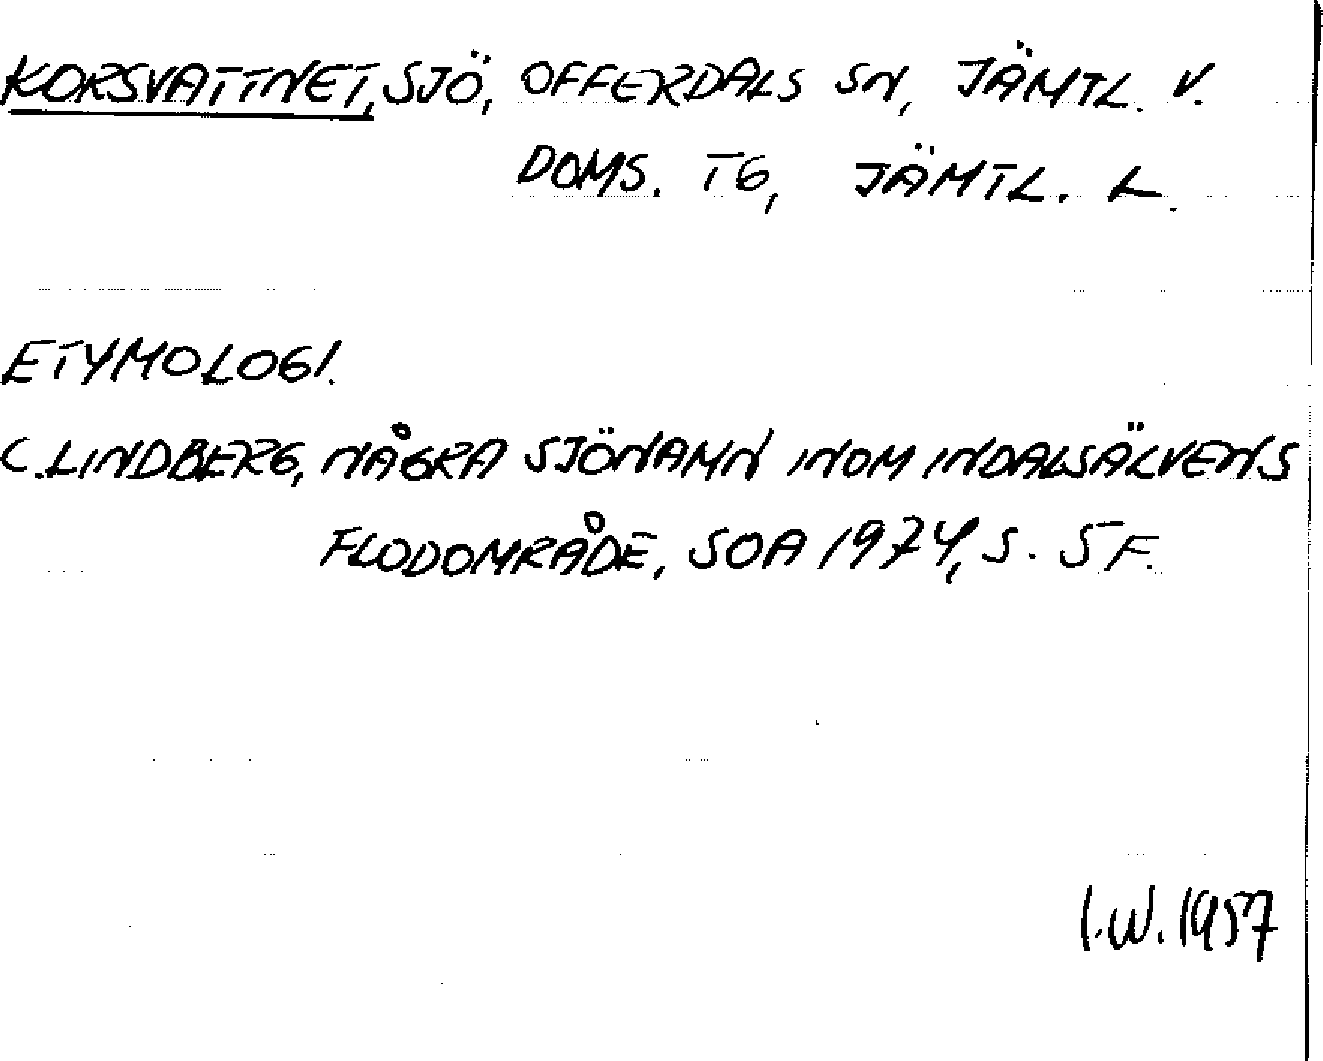 KORSVATTNET, SJÖ, OFFERDALS SN, JÄMTL. V.
DOMS. TG, JÄMTL. L.
ETYMOLOGI.
C. LINDBERG, NÅGRA SJÖNAMN INOM INDALSÄLVENS
FLODOMRÅDE, SOA 1974, S. 5 F.
I.W. 1957